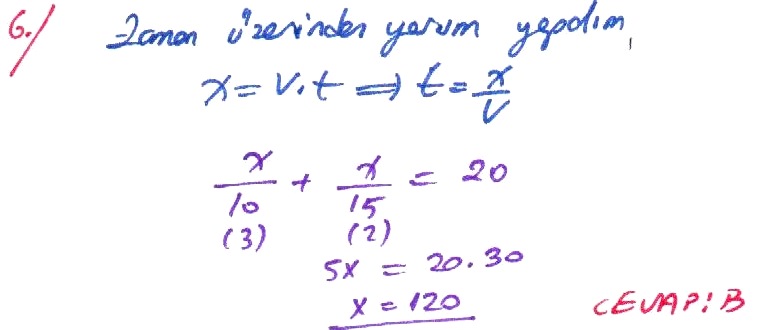 6.) Zaman üzerinden yorum yapalım,
x = V.t ⟹ t = x/V
x/10 + x/15 = 20
(3) (2)
5x = 20.30
x = 120
CEVAP: B